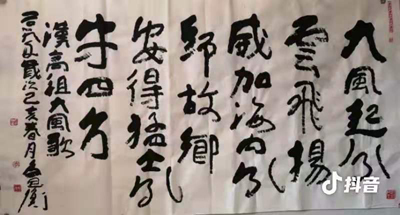 大風起兮
雲飛揚
威加海内兮
歸故鄉
安得猛士兮
守四方
漢高祖大風歌
歲次己亥春月
抖音